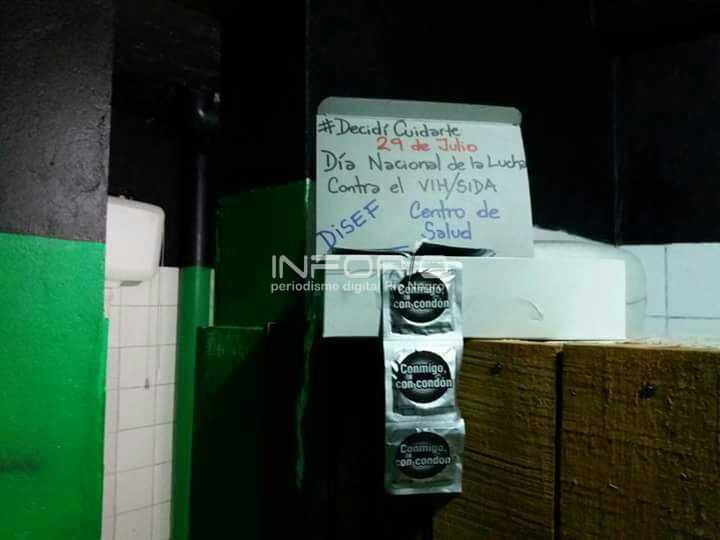 #Decidí Cuidarte
29 de Julio
Día Nacional de la Lucha
Contra el VIH/SIDA
DiSEF Centro de Salud
INFORIO
periodismo digital Río Negro
Conmigo,
con condón
Conmigo,
con condón
Conmigo,
con condón